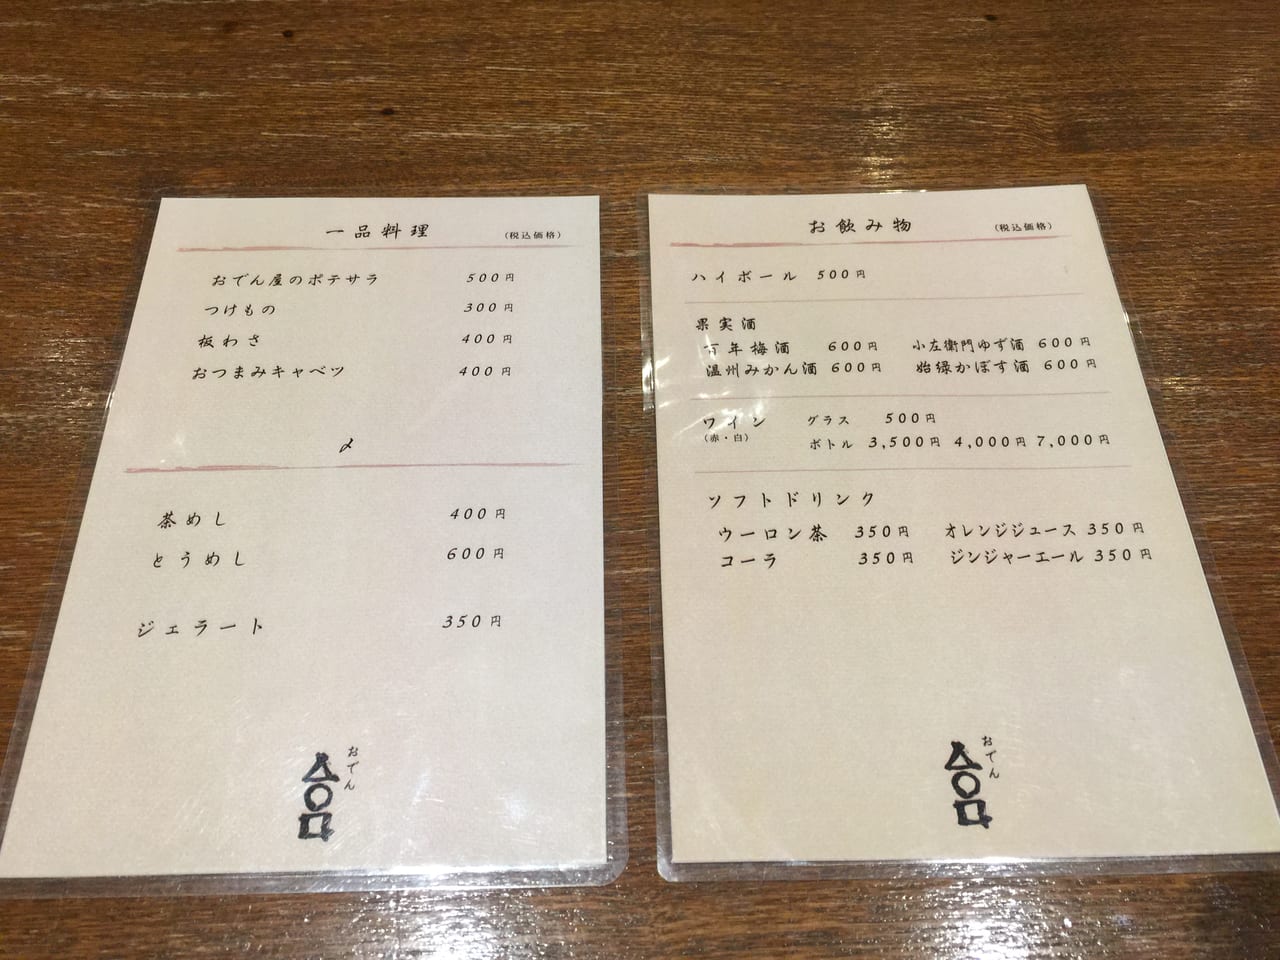 一品料理 (税込価格)
おでん屋のポテサラ 500円
つけもの 300円
板わさ 400円
おつまみキャベツ 400円
〆
茶めし 400円
とうめし 600円
ジェラート 350円
おでん
お飲み物 (税込価格)
ハイボール 500円
果実酒
百年梅酒 600円 小左衛門ゆず酒 600円
温州みかん酒 600円 始禄かぼす酒 600円
ワイン グラス 500円
(赤・白) ボトル 3,500円 4,000円 7,000円
ソフトドリンク
ウーロン茶 350円 オレンジジュース 350円
コーラ 350円 ジンジャーエール 350円
おでん